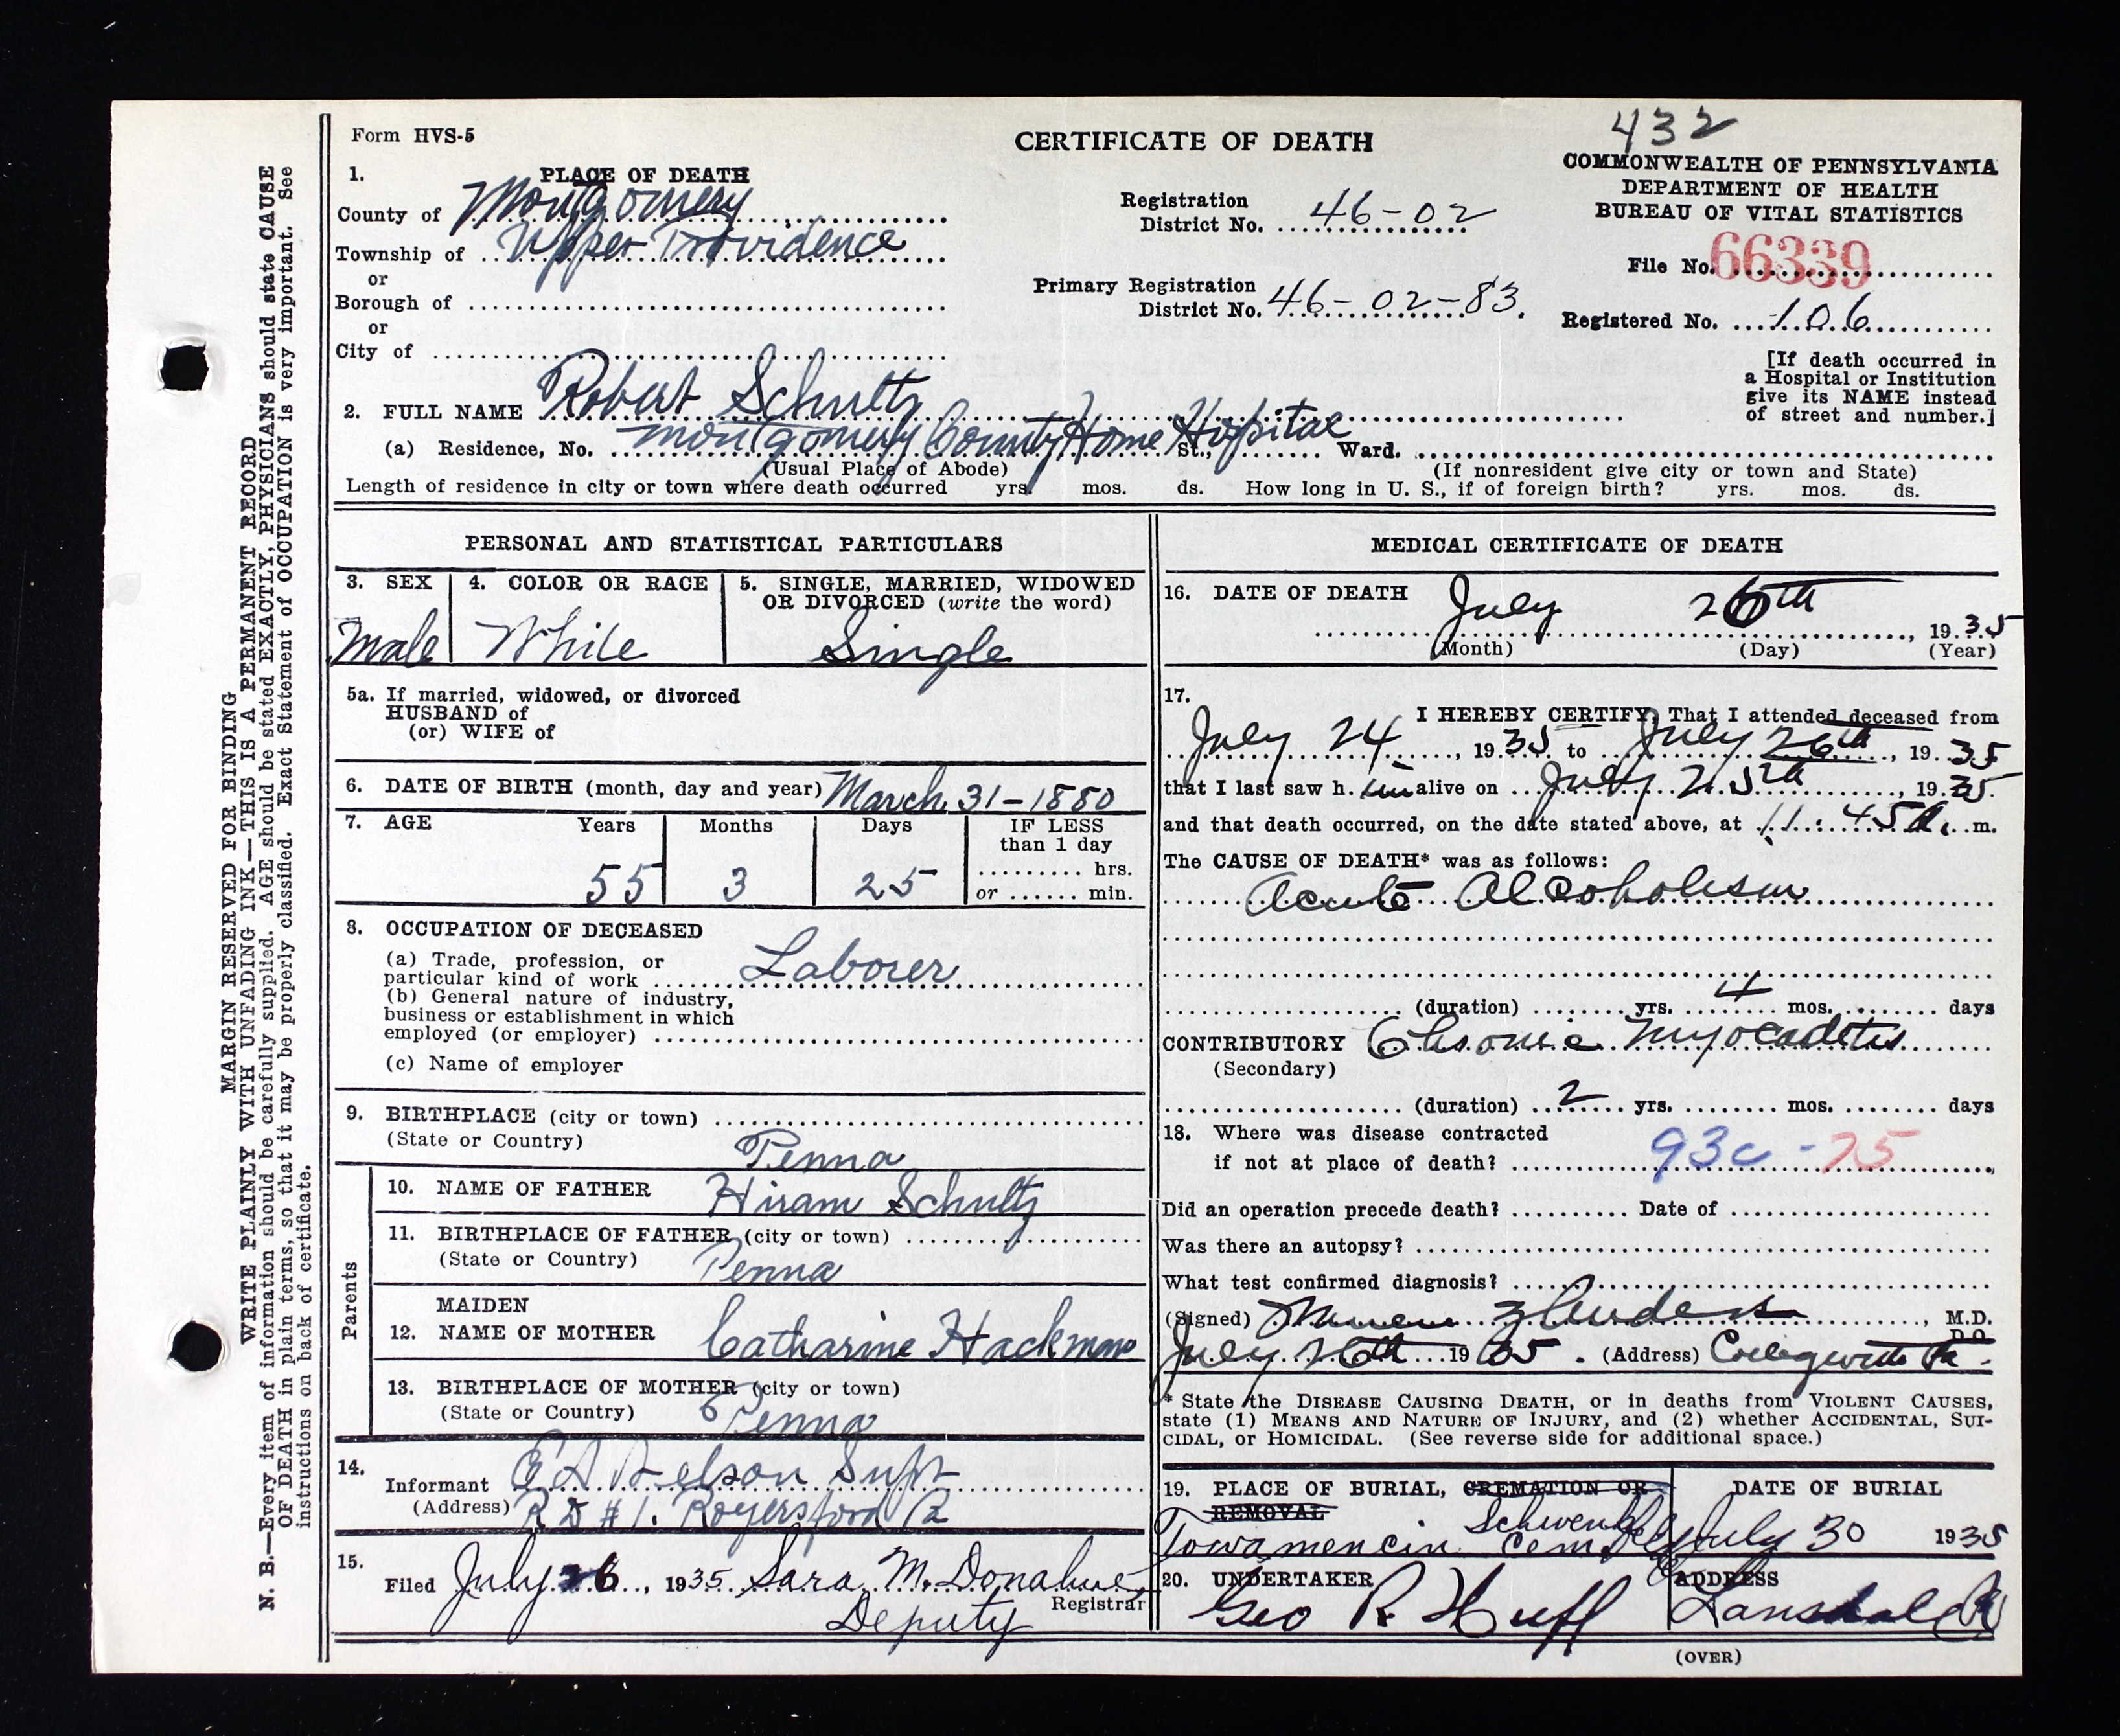 432
Form HVS-5
CERTIFICATE OF DEATH
COMMONWEALTH OF PENNSYLVANIA
DEPARTMENT OF HEALTH
BUREAU OF VITAL STATISTICS
1. PLACE OF DEATH
County of Montgomery
Township of Upper Providence
or
Borough of
or
City of
Registration
District No. 46-02
Primary Registration
District No. 46-02-83.
File No. 66339
Registered No. 106
[If death occurred in
a Hospital or Institution
give its NAME instead
of street and number.]
2. FULL NAME Robert Schultz
(a) Residence, No. Montgomery County Home Hospital St., Ward.
(Usual Place of Abode) (If nonresident give city or town and State)
Length of residence in city or town where death occurred yrs. mos. ds. How long in U. S., if of foreign birth? yrs. mos. ds.
PERSONAL AND STATISTICAL PARTICULARS
3. SEX 4. COLOR OR RACE 5. SINGLE, MARRIED, WIDOWED
OR DIVORCED (write the word)
Male White Single
5a. If married, widowed, or divorced
HUSBAND of
(or) WIFE of
6. DATE OF BIRTH (month, day and year) March 31-1880
7. AGE Years Months Days IF LESS
than 1 day
hrs.
55 3 25 or min.
8. OCCUPATION OF DECEASED
(a) Trade, profession, or
particular kind of work Laborer
(b) General nature of industry,
business or establishment in which
employed (or employer)
(c) Name of employer
9. BIRTHPLACE (city or town)
(State or Country) Penna
Parents
10. NAME OF FATHER Hiram Schultz
11. BIRTHPLACE OF FATHER (city or town)
(State or Country) Penna
MAIDEN
12. NAME OF MOTHER Catharine Hackman
13. BIRTHPLACE OF MOTHER (city or town)
(State or Country) Penna
14. Informant E A Nelson Supt
(Address) R D #1. Royersford Pa
15. Filed July 26, 1935 Sara M. Donahue,
Registrar
Deputy
MEDICAL CERTIFICATE OF DEATH
16. DATE OF DEATH July 26th
, 1935
(Month) (Day) (Year)
17. I HEREBY CERTIFY, That I attended deceased from
July 24, 1935 to July 26th, 1935
that I last saw h. im alive on July 25th, 1935.
and that death occurred, on the date stated above, at 11:45 A. m.
The CAUSE OF DEATH* was as follows:
Acute Alcoholism
(duration) yrs. 4 mos. days
CONTRIBUTORY Chronic Myocaditis
(Secondary)
(duration) 2 yrs. mos. days
18. Where was disease contracted
if not at place of death? 93c - 75
Did an operation precede death? Date of
Was there an autopsy?
What test confirmed diagnosis?
(Signed) , M.D.
D.O.
July 26th 1935. (Address) Collegeville Pa.
* State the DISEASE CAUSING DEATH, or in deaths from VIOLENT CAUSES,
state (1) MEANS AND NATURE OF INJURY, and (2) whether ACCIDENTAL, SUI-
CIDAL, or HOMICIDAL. (See reverse side for additional space.)
19. PLACE OF BURIAL, CREMATION OR DATE OF BURIAL
REMOVAL
Towamencin Schwenkf Cem. July 30 1935
20. UNDERTAKER ADDRESS
Geo R. Huff Lansdale Pa
(OVER)
MARGIN RESERVED FOR BINDING
WRITE PLAINLY WITH UNFADING INK—THIS IS A PERMANENT RECORD
N. B.—Every item of information should be carefully supplied. AGE should be stated EXACTLY, PHYSICIANS should state CAUSE
OF DEATH in plain terms, so that it may be properly classified. Exact Statement of OCCUPATION is very important. See
instructions on back of certificate.